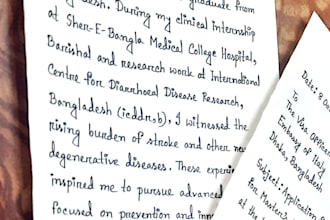 graduate from
desh. During my clinical internship
at Sher-E-Bangla Medical College Hospital,
Barishal and research work at International
Centre for Diarrhoeal Disease Research,
Bangladesh (icddr,b), I witnessed the
rising burden of stroke and other
degenerative diseases. These
inspired me to pursue advanced
focused on prevention and
Date:
To
The Visa Officer
Embassy of Italy
Dhaka, Bangladesh
Subject: Application
for Master's
at the